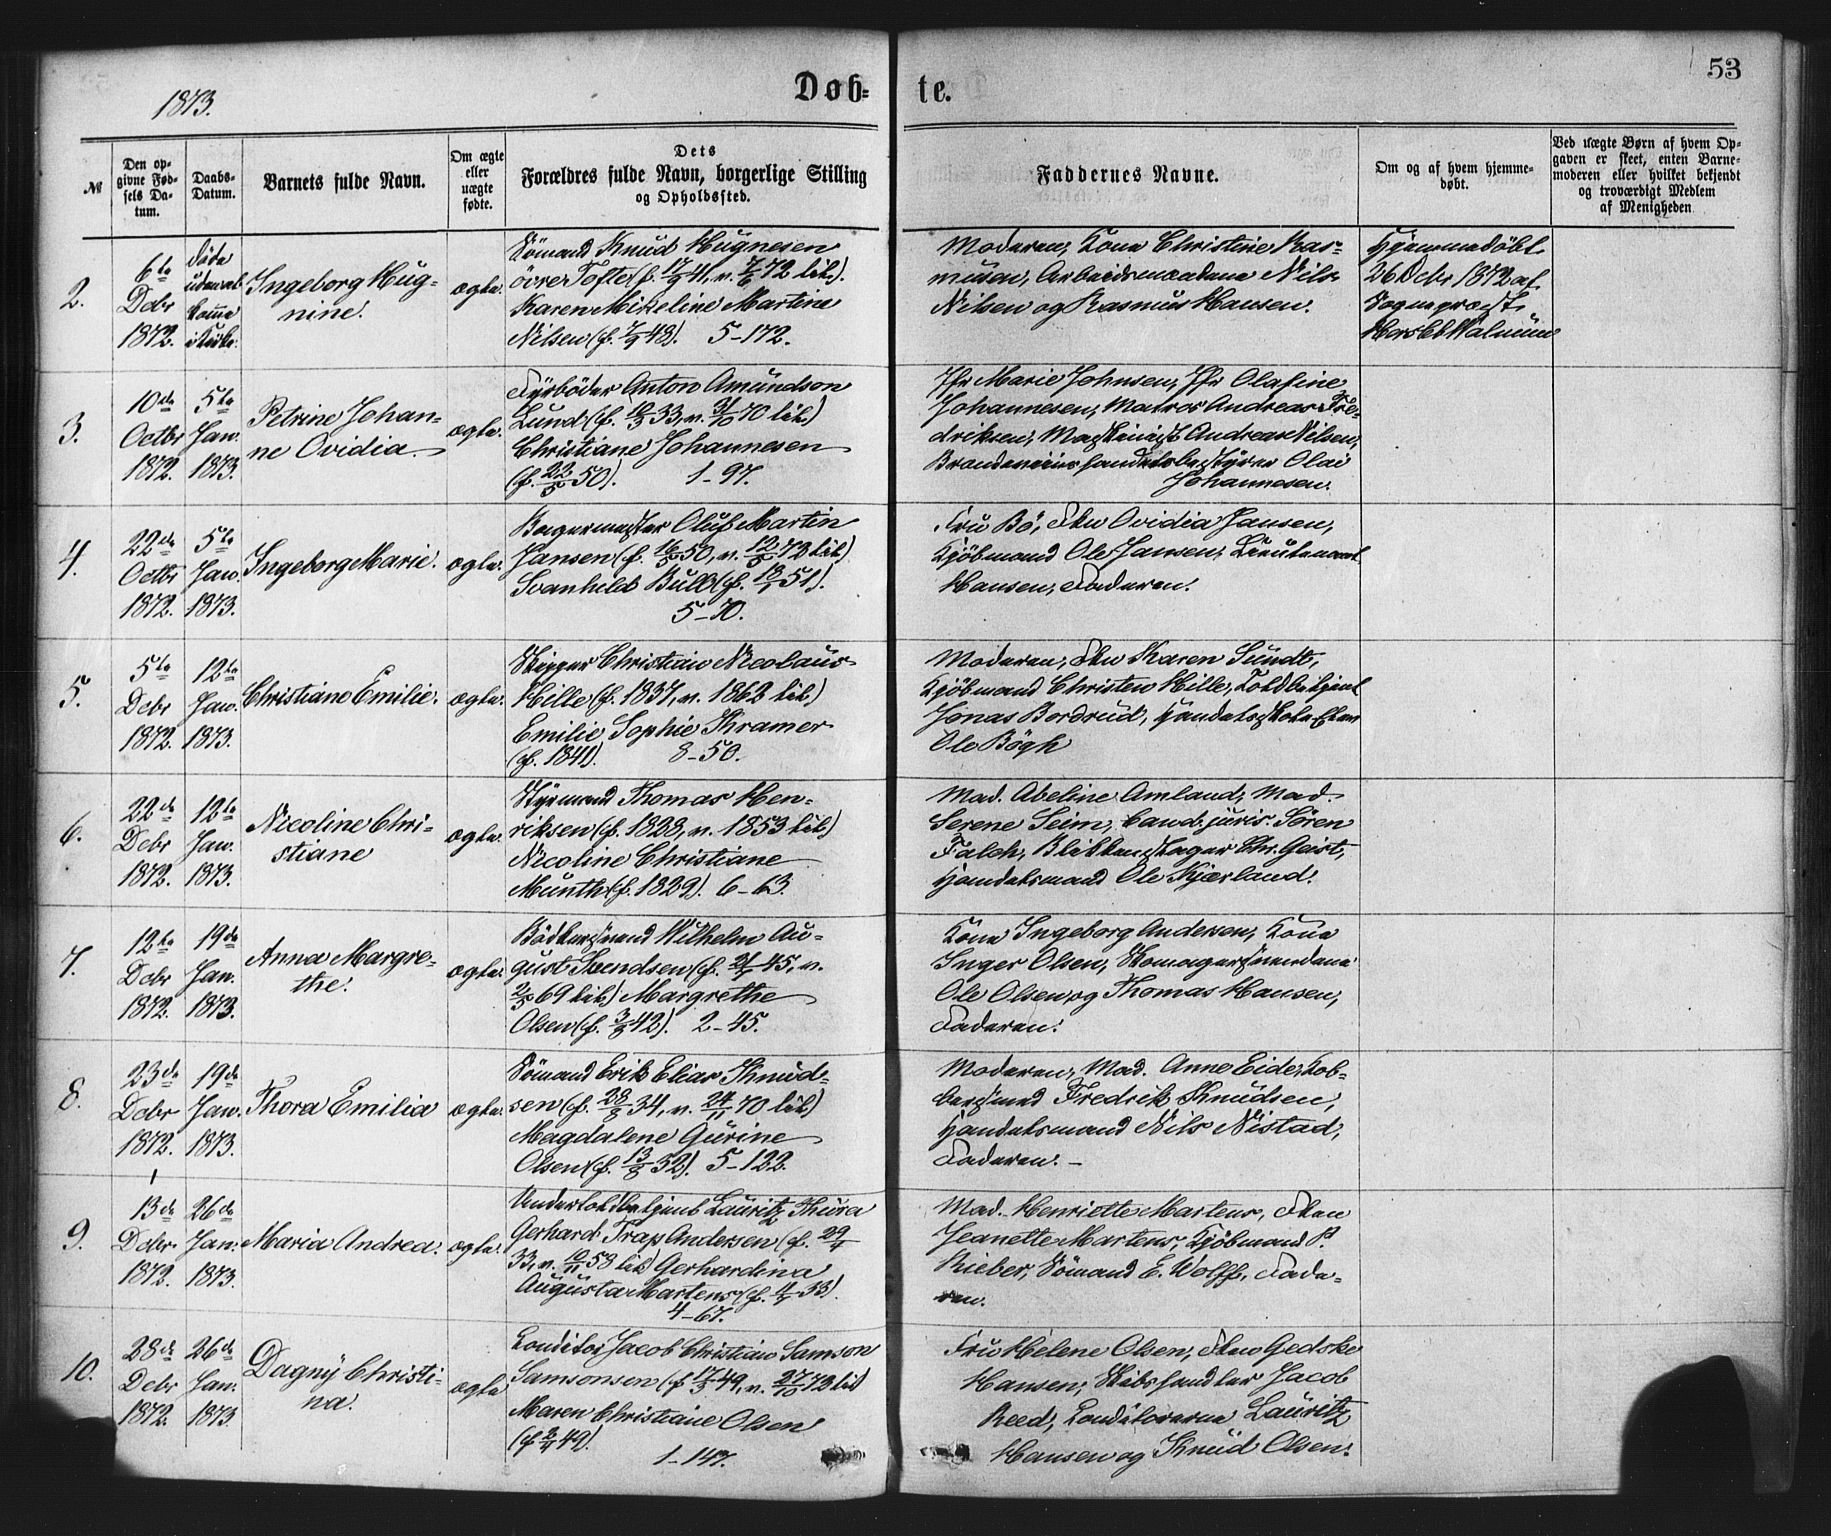 53
1873.
Døb-
te.
№
Den op-
givne Fød-
sels Da-
tum.
Daabs-
Datum.
Barnets fulde Navn.
Om ægte
eller
uægte
fødte.
Dets
Forældres fulde Navn, borgerlige Stilling
og Opholdssted.
Faddernes Navne.
Om og af hvem hjemme-
døbt.
Ved uægte Børn af hvem Op-
gaven er skeet, enten Barne-
moderen eller hvilket bekjendt
og troværdigt Medlem
af Menigheden
2.
6te
Dcbr
1872.
Døde
uden at
komme
i Kirke.
Ingeborg Hug-
nine.
ægte.
Sömand Knud Hugnesen
övre Tofte (f. 17/9 41, v. 7/6 72 lib).
Karen Mikeline Martine
Nilsen (f. 7/9 48). 5-172.
Moderen, Kone Christine Ras-
musen, Arbeidsmændene Nils
Nilsen og Rasmus Hansen.
Hjemmedöbt
26 Dcbr 1872 af
Sognepræst
3.
10de
Octbr
1872.
5te
Jan.
1873.
Petrine Johan-
ne Ovidia.
ægte.
Fyrböder Anton Amundson
Lund (f. 12/3 33, v. 31/10 70 lib)
Christiane Johannesen
(f. 22/5 50). 1-97.
Jfr Marie Johnsen, Jfr Olafine
Johannesen, Matros Andreas Fre-
driksen, Maskinist Andreas Nilsen,
Brændeviinshandelsbestyrer Olai
Johannesen.
4.
22de
Octbr
1872.
5te
Jan.
1873.
Ingeborg Marie.
ægte.
Bagermester Oluf Martin
Jansen (f. 16/5 50, v. 12/5 72 lib)
Svanhild Bull (f. 18/1 51).
5-70.
Fru Bö, Fkn Ovidia Jansen,
Kjöbmand Ole Jansen, Lieutenant
Hansen, Faderen.
5.
5te
Dcbr
1872.
12te
Jan.
1873.
Christiane Emilie.
ægte.
Skipper Christian Nicolaus
Hille (f. 1837, v. 1862 lib)
Emilie Sophie Kramer
(f. 1841). 8-50.
Moderen, Fkn Karen Sundt,
Kjöbmand Christen Hille, Toldbetjent
Jonas Bordrud, Handelsskoleelev
Ole Bögh
6.
22de
Dcbr
1872.
12te
Jan.
1873.
Nicoline Chri-
stiane
ægte.
Styrmand Thomas Hen-
riksen (f. 1828, v. 1853 lib)
Nicoline Christiane
Münth (f. 1829). 6-63.
Mad. Abeline Amland, Mad.
Serene Seim, Cand. juris. Sören
Falch, Blikkenslager Chr. Geist,
Handelsmand Ole Kjærland.
7.
12te
Dcbr
1872.
19de
Jan.
1873.
Anna Margre-
the.
ægte.
Bödkersvend Wilhelm Au-
gust Svendsen (f. 21/1 45, v.
2/5 69 lib) Margrethe
Olsen (f. 3/8 42). 2-45.
Kone Ingeborg Andersen, Kone
Inger Olsen, Skomagersvendene
Ole Olsen og Thomas Hansen,
Faderen.
8.
23de
Dcbr
1872.
19de
Jan.
1873.
Thora Emilia
ægte.
Sömand Erik Elias Knud-
sen (f. 28/8 34, v. 24/11 70 lib)
Magdalene Gurine
Olsen (f. 13/8 32). 5-122.
Moderen, Mad. Anne Eide, Kob-
bersmed Fredrik Knudsen,
Handelsmand Nils Nistad,
Faderen. -
9.
13de
Dcbr
1872.
26de
Jan.
1873.
Maria Andrea.
ægte.
Undertoldbetjent Lauritz Thura
Gerhard Trap Andersen (f. 29/4
33, v. 10/11 58 lib) Gerhardina
Augusta Martens (f. 4/4 33).
4-67.
Mad. Henriette Martens, Fkn
Jeanette Martens, Kjöbmand P.
Rieber, Sömand E. Wolff, Fade-
ren.
10.
28de
Dcbr
1872.
26de
Jan.
1873.
Dagny Christi-
na.
ægte
Conditor Jacob Christian Samson
Samsonsen (f. 17/3 49, v. 27/10 72 lib)
Maren Christiane Olsen
(f. 2/4 49).
1-147.
Fru Helene Olsen, Fkn Gedske
Hansen, Skibshandler Jacob
Reed, Conditorerne Lauritz
Hansen og Knud Olsen.